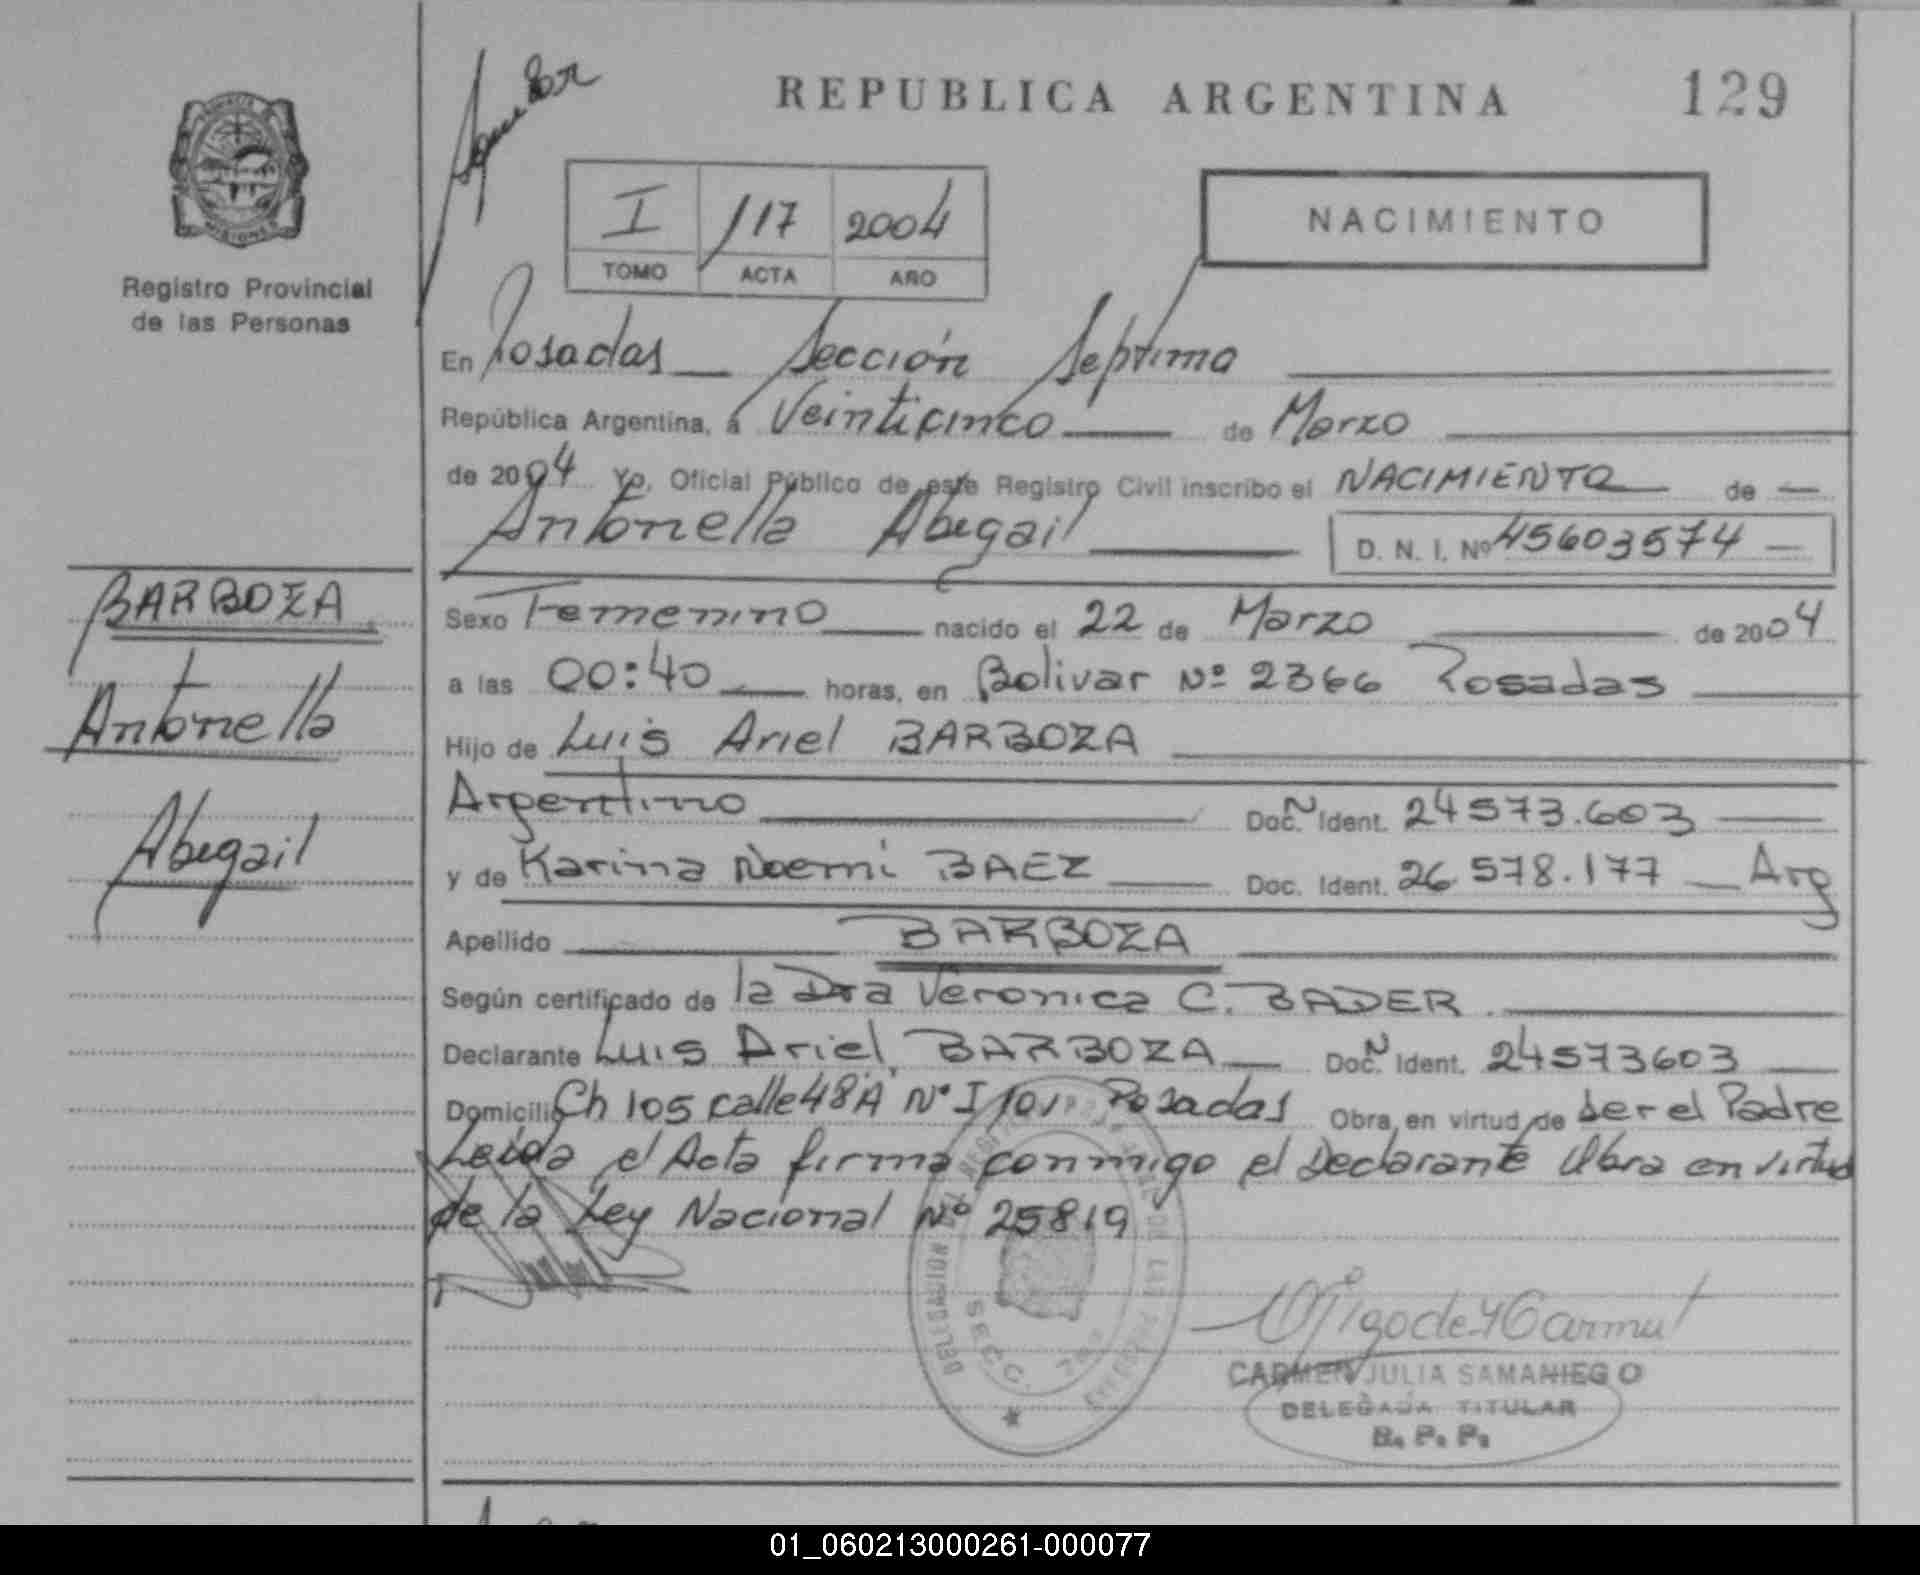 REPUBLICA ARGENTINA 129
MISIONES
Registro Provincial
de las Personas
I /117 2004
TOMO ACTA AÑO
NACIMIENTO
En Posadas — Sección Septima
República Argentina, a Veinticinco — de Marzo
de 2004 Yo, Oficial Público de este Registro Civil inscribo el NACIMIENTO de —
Antonella Abegail — D. N. I. Nº 45603574 —
BARBOZA
Antonella
Abegail
Sexo Femenino — nacido el 22 de Marzo — de 2004
a las 00:40 — horas, en Bolivar Nº 2366 Posadas —
Hijo de Luis Ariel BARBOZA —
Argentino — Doc. N Ident. 24573.603 —
y de Karina Noemi BAEZ — Doc. Ident. 26.578.177 — Arg
Apellido — BARBOZA —
Según certificado de la Dra Veronica C. BADER. —
Declarante Luis Ariel, BARBOZA — Doc. N Ident. 24573603 —
Domicilio Ch 105 calle 48A Nº I 101 Posadas Obra en virtud de ser el Padre
Leida el Acta firma conmigo el Declarante Obra en virtud
de la Ley Nacional Nº 25819
DELEGACION DEL REGISTRO PROVINCIAL DE LAS PERSONAS
SECC. 7ma
CARMEN JULIA SAMANIEGO
DELEGADA TITULAR
R. P. P.
01_060213000261-000077